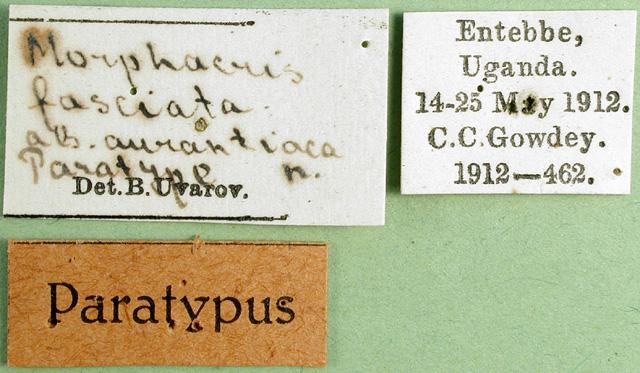 Morphacris
fasciata
ab. aurantiaca
Paratype n.
Det. B. Uvarov.
Entebbe,
Uganda.
14-25 May 1912.
C.C.Gowdey.
1912—462.
Paratypus